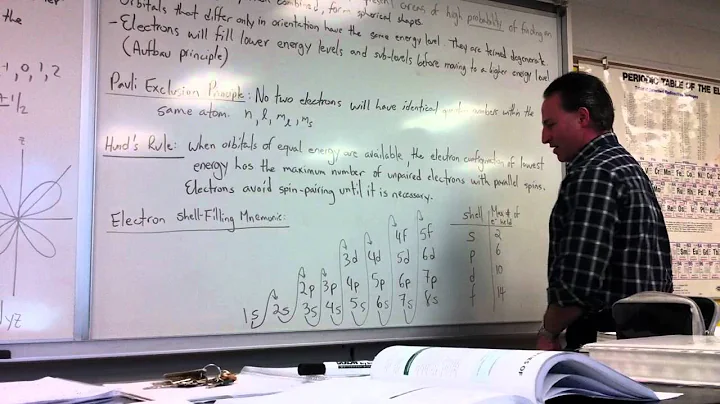 combined, form spherical shapes.
areas of high probability of finding an
Orbitals that differ only in orientation have the same energy level. They are termed degenerate.
- Electrons will fill lower energy levels and sub-levels before moving to a higher energy level
(Aufbau principle)
Pauli Exclusion Principle: No two electrons will have identical quantum numbers within the
same atom. n, l, ml, ms
Hund's Rule: when orbitals of equal energy are available, the electron configuration of lowest
energy has the maximum number of unpaired electrons with parallel spins.
Electrons avoid spin-pairing until it is necessary.
Electron Shell-Filling Mnemonic:
4f 5f
3d 4d 5d 6d
2p 3p 4p 5p 6p 7p
1s 2s 3s 4s 5s 6s 7s 8s
shell Max # of e⁻ held
s 2
p 6
d 10
f 14
-1, 0, 1, 2
z
yz
PERIODIC TABLE OF THE EL